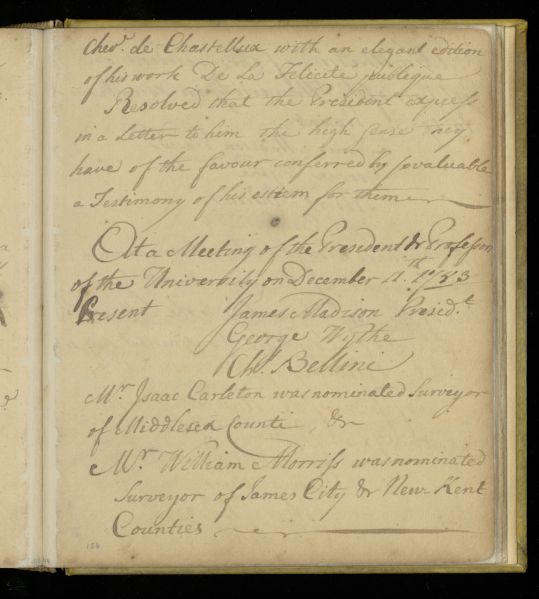 Chevr. de Chastellux with an elegant edition
of his work De La Felicite publique
Resolved that the President express
in a Letter to him the high sense they
have of the favour conferred by so valuable
a Testimony of his esteem for them
At a Meeting of the President & Professors
of the University on December 4.th 1783
Present James Madison Presid.t
George Wythe
Chs. Bellini
Mr. Isaac Carleton was nominated Surveyor
of Middlesex Counti &
Mr. William Morriss was nominated
Surveyor of James City & New-Kent
Counties